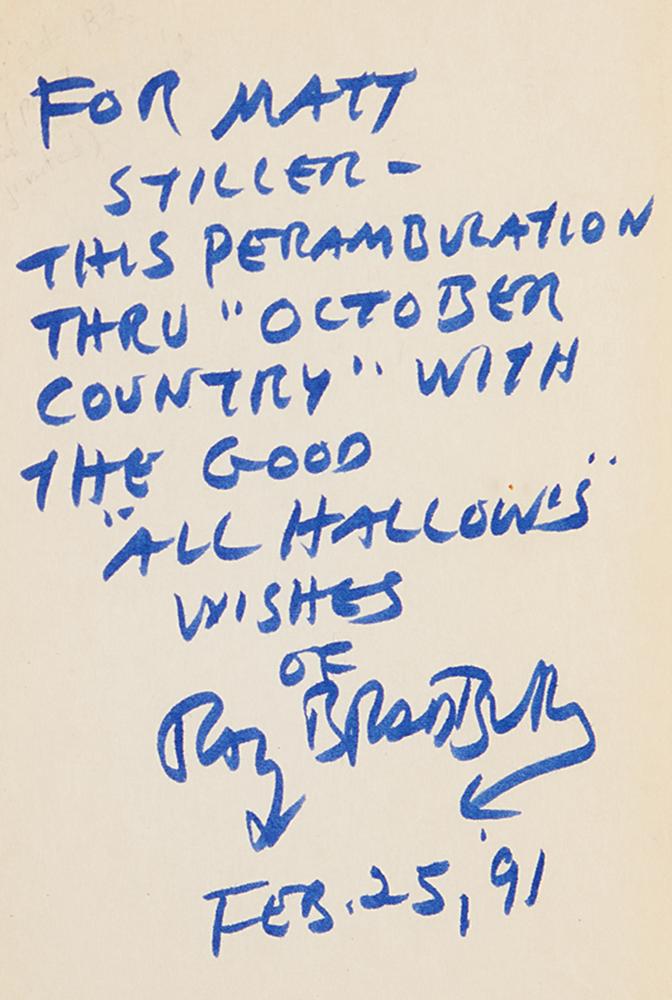 FOR MATT
STILLER -
THIS PERAMBULATION
THRU "OCTOBER
COUNTRY" WITH
THE GOOD
"ALL HALLOWS"
WISHES
OF
RAY BRADBURY
FEB. 25, '91